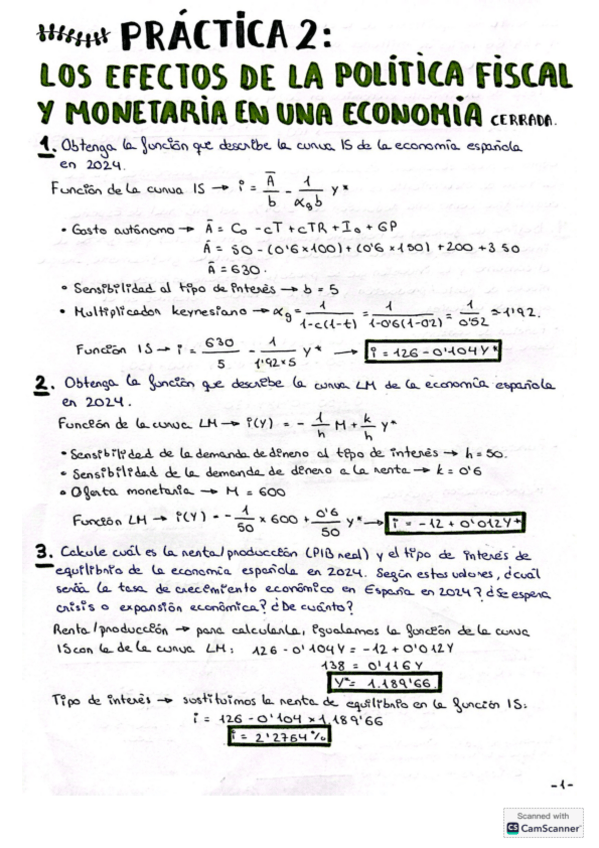 PRÁCTICA 2:
LOS EFECTOS DE LA POLÍTICA FISCAL
Y MONETARIA EN UNA ECONOMÍA CERRADA.
1. Obtenga la función que describe la curva IS de la economía española
en 2024.
Función de la curva IS → i = Ā/b - 1/(αg b) Y*
• Gasto autónomo → Ā = C₀ - cT + cTR + I₀ + GP
Ā = 50 - (0'6 × 100) + (0'6 × 150) + 200 + 350
Ā = 630.
• Sensibilidad al tipo de interés → b = 5
• Multiplicador keynesiano → αg = 1/(1-c(1-t)) = 1/(1-0'6(1-0'2)) = 1/0'52 = 1'92.
Función IS → i = 630/5 - 1/(1'92×5) Y* → i = 126 - 0'104 Y*
2. Obtenga la función que describe la curva LM de la economía española
en 2024.
Función de la curva LM → i(Y) = - 1/h M + k/h Y*
• Sensibilidad de la demanda de dinero al tipo de interés → h = 50.
• Sensibilidad de la demanda de dinero a la renta → k = 0'6
• Oferta monetaria → M = 600
Función LM → i(Y) = - 1/50 × 600 + 0'6/50 Y* → i = -12 + 0'012Y*
3. Calcule cuál es la renta/producción (PIB real) y el tipo de interés de
equilibrio de la economía española en 2024. Según estos valores, ¿cuál
sería la tasa de crecimiento económico en España en 2024? ¿Se espera
crisis o expansión económica? ¿De cuánto?
Renta/producción → para calcularla, igualamos la función de la curva
IS con la de la curva LM: 126 - 0'104Y = -12 + 0'012Y
138 = 0'116Y
Y* = 1.189'66.
Tipo de interés → sustituimos la renta de equilibrio en la función IS:
i = 126 - 0'104 × 1.189'66
i = 2'2764%
-1-
Scanned with
CS CamScanner